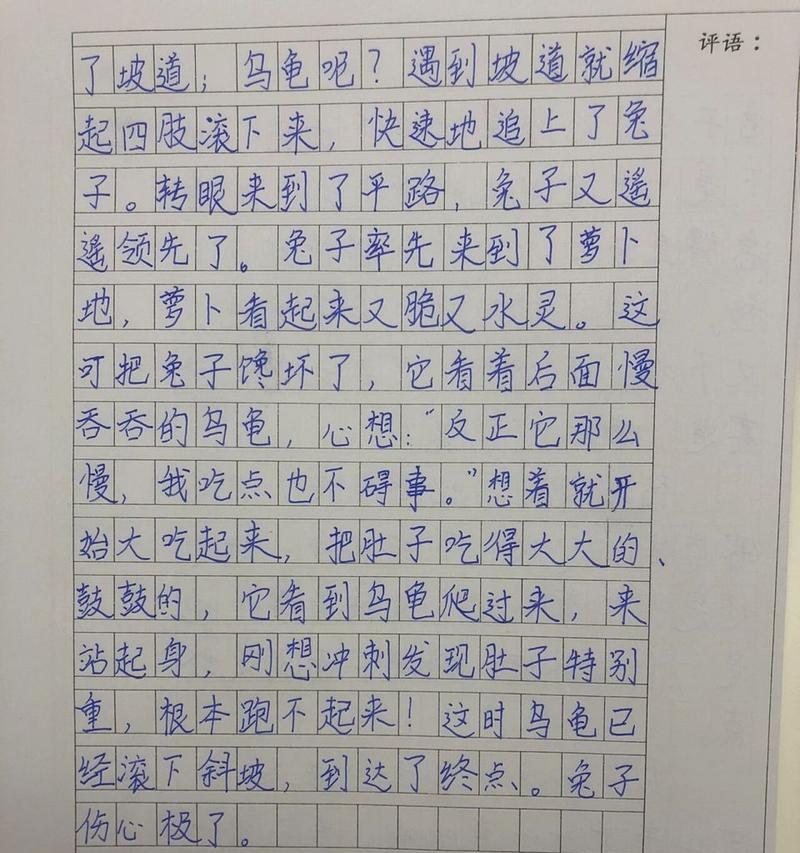 评语：
了坡道；乌龟呢？遇到坡道就缩
起四肢滚下来，快速地追上了兔
子。转眼来到了平路，兔子又遥
遥领先了。兔子率先来到了萝卜
地，萝卜看起来又脆又水灵。这
可把兔子馋坏了，它看着后面慢
吞吞的乌龟，心想：“反正它那么
慢，我吃点也不碍事。”想着就开
始大吃起来，把肚子吃得大大的、
鼓鼓的，它看到乌龟爬过来，来
站起身，刚想冲刺发现肚子特别
重，根本跑不起来！这时乌龟已
经滚下斜坡，到达了终点。兔子
伤心极了。